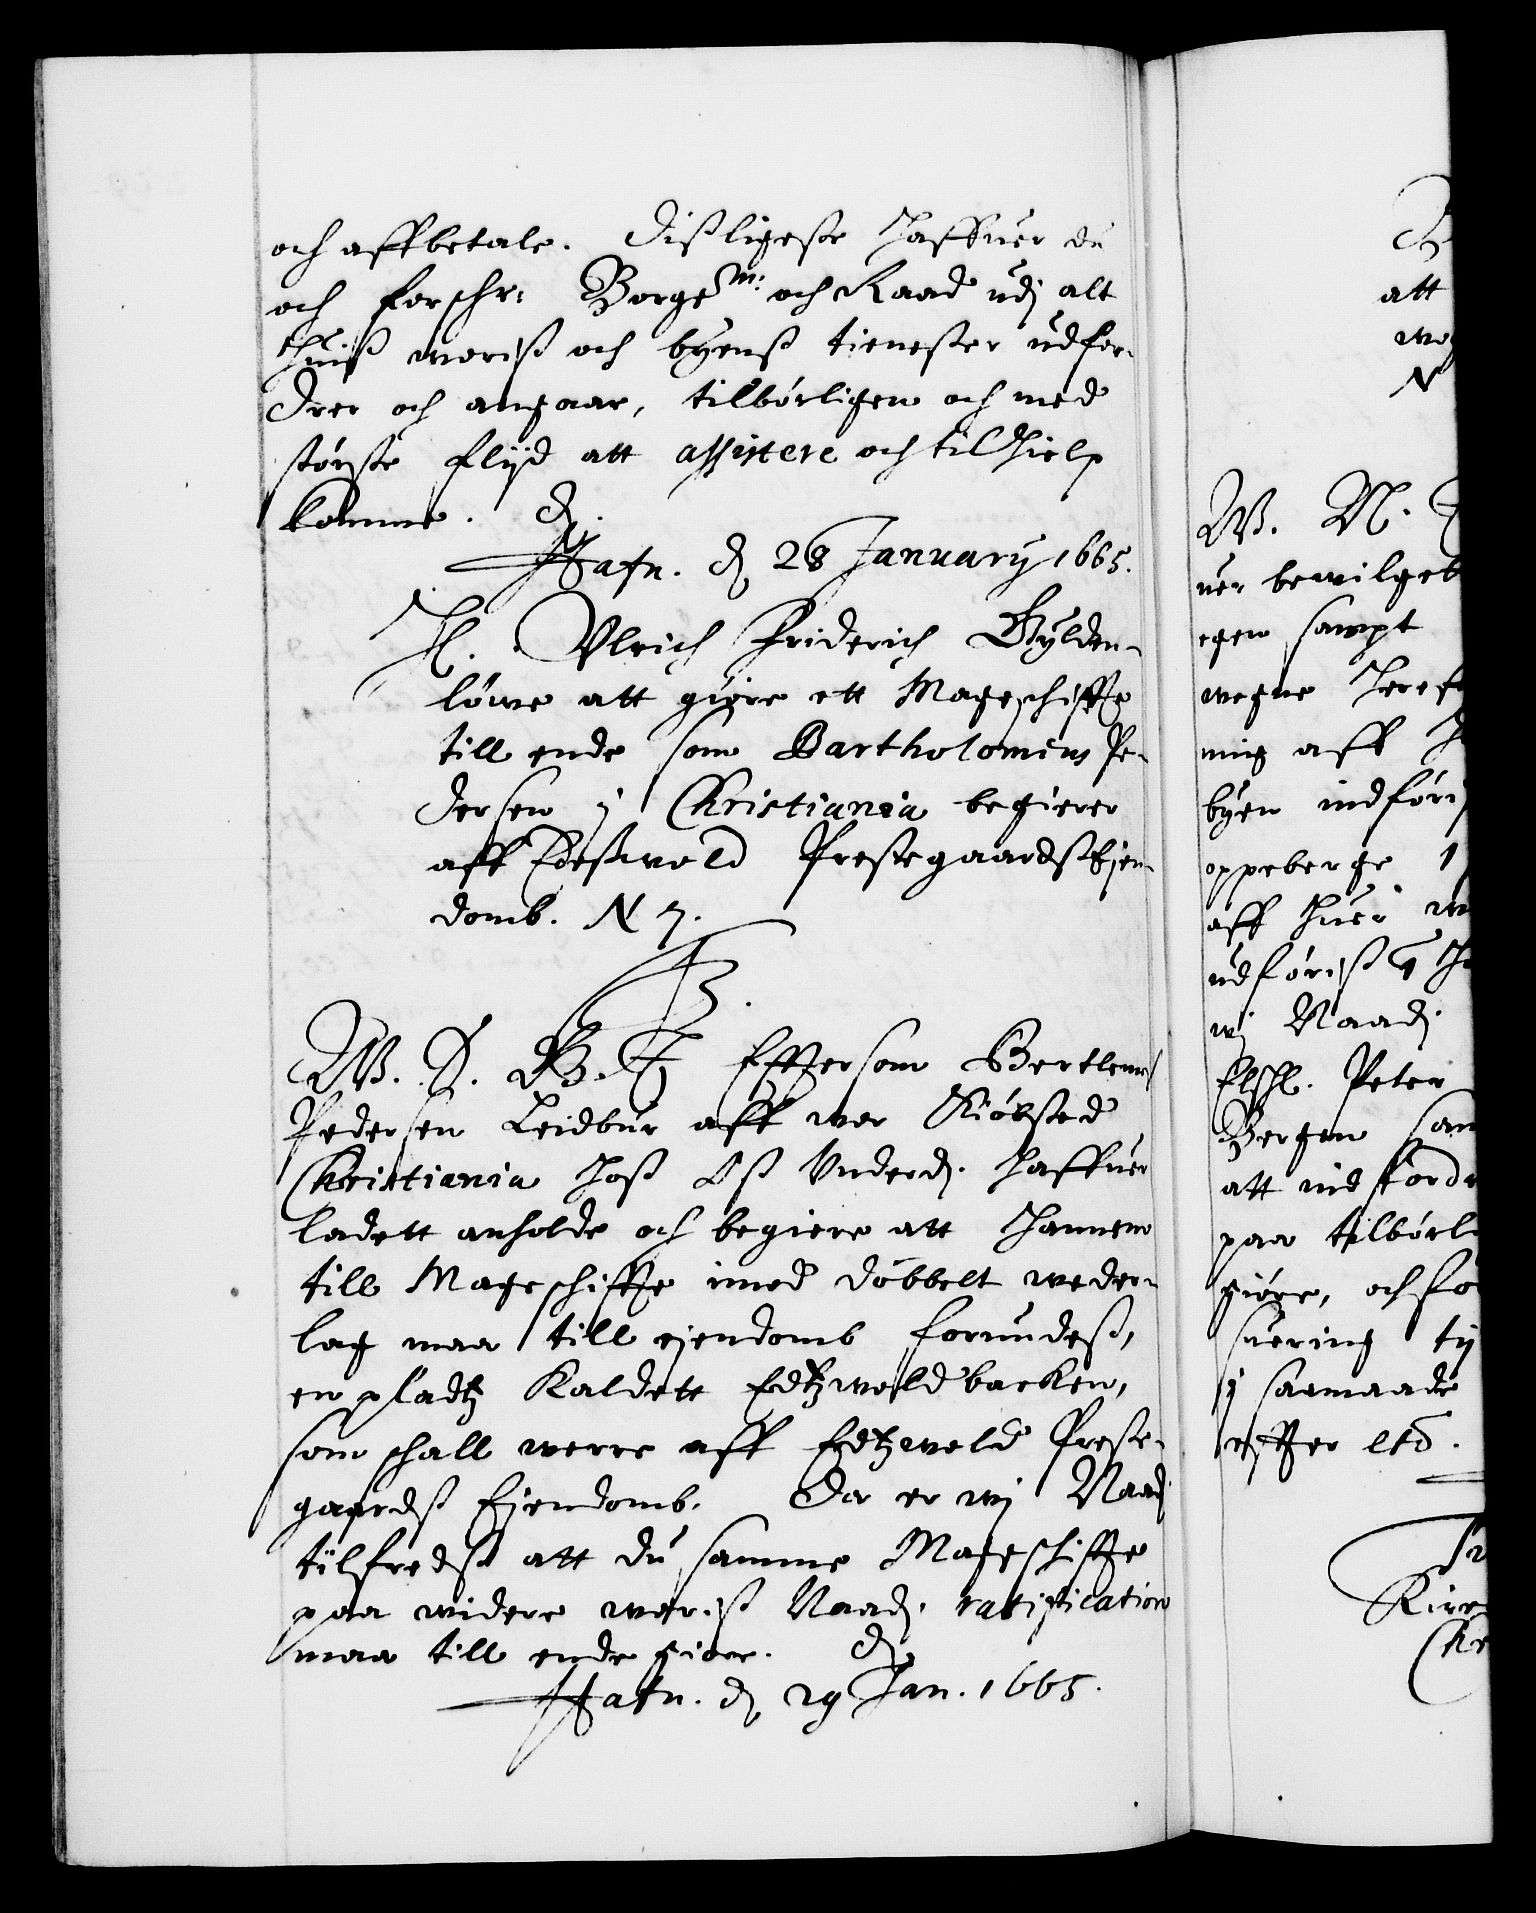 och affbetale. Dißligeste haffuer du
och forschr: Borgem: och Raad udj alt
huiß woriß och byenß tienester udfor-
drer och angaar, tilbörligen och med
störste flijd att assistere och til hielp
komme. d.
Hafn. d. 28 January 1665.
H. Vlrich Friderich Gylden-
löwe att giöre ett Mageschiffte
till ende som Bartholomeus Pe-
dersen j Christiania begierer
aff Edeßvold Prestegaardß Ejen-
domb. N 7.
F 3.
W. S. G. T. Efftersom Bertlemeß
Pedersen Leidbur aff wor Kiöbsted
Christiania hoß Oß Underd. haffuer
ladett anholde och begiere att hannem
till Mageschiffte imod döbbelt weder-
lag maa till ejendomb forundeß,
en pladtz kaldett Edtzwoldbacken,
som schall werre aff Edtzwold Preste-
gaardß Ejendomb. Da er wj Naad.
tilfredß att du samme Mageschiffte
paa widere woriß Naad. ratification
maa till ende giöre. d.
Hafn. d. 29 Jan. 1665.
att
N
W. M.
uer bewilget
egen sampt
wegne
ning aff
byen indföri
oppeberge 1
aff huer
udföriß
wj Naad.
Elschl. Peter
Bergen sam
att indfordr
paa tilbörl
giöre, och fo
suering
j saamaade
effter etc.
Kir
Chr